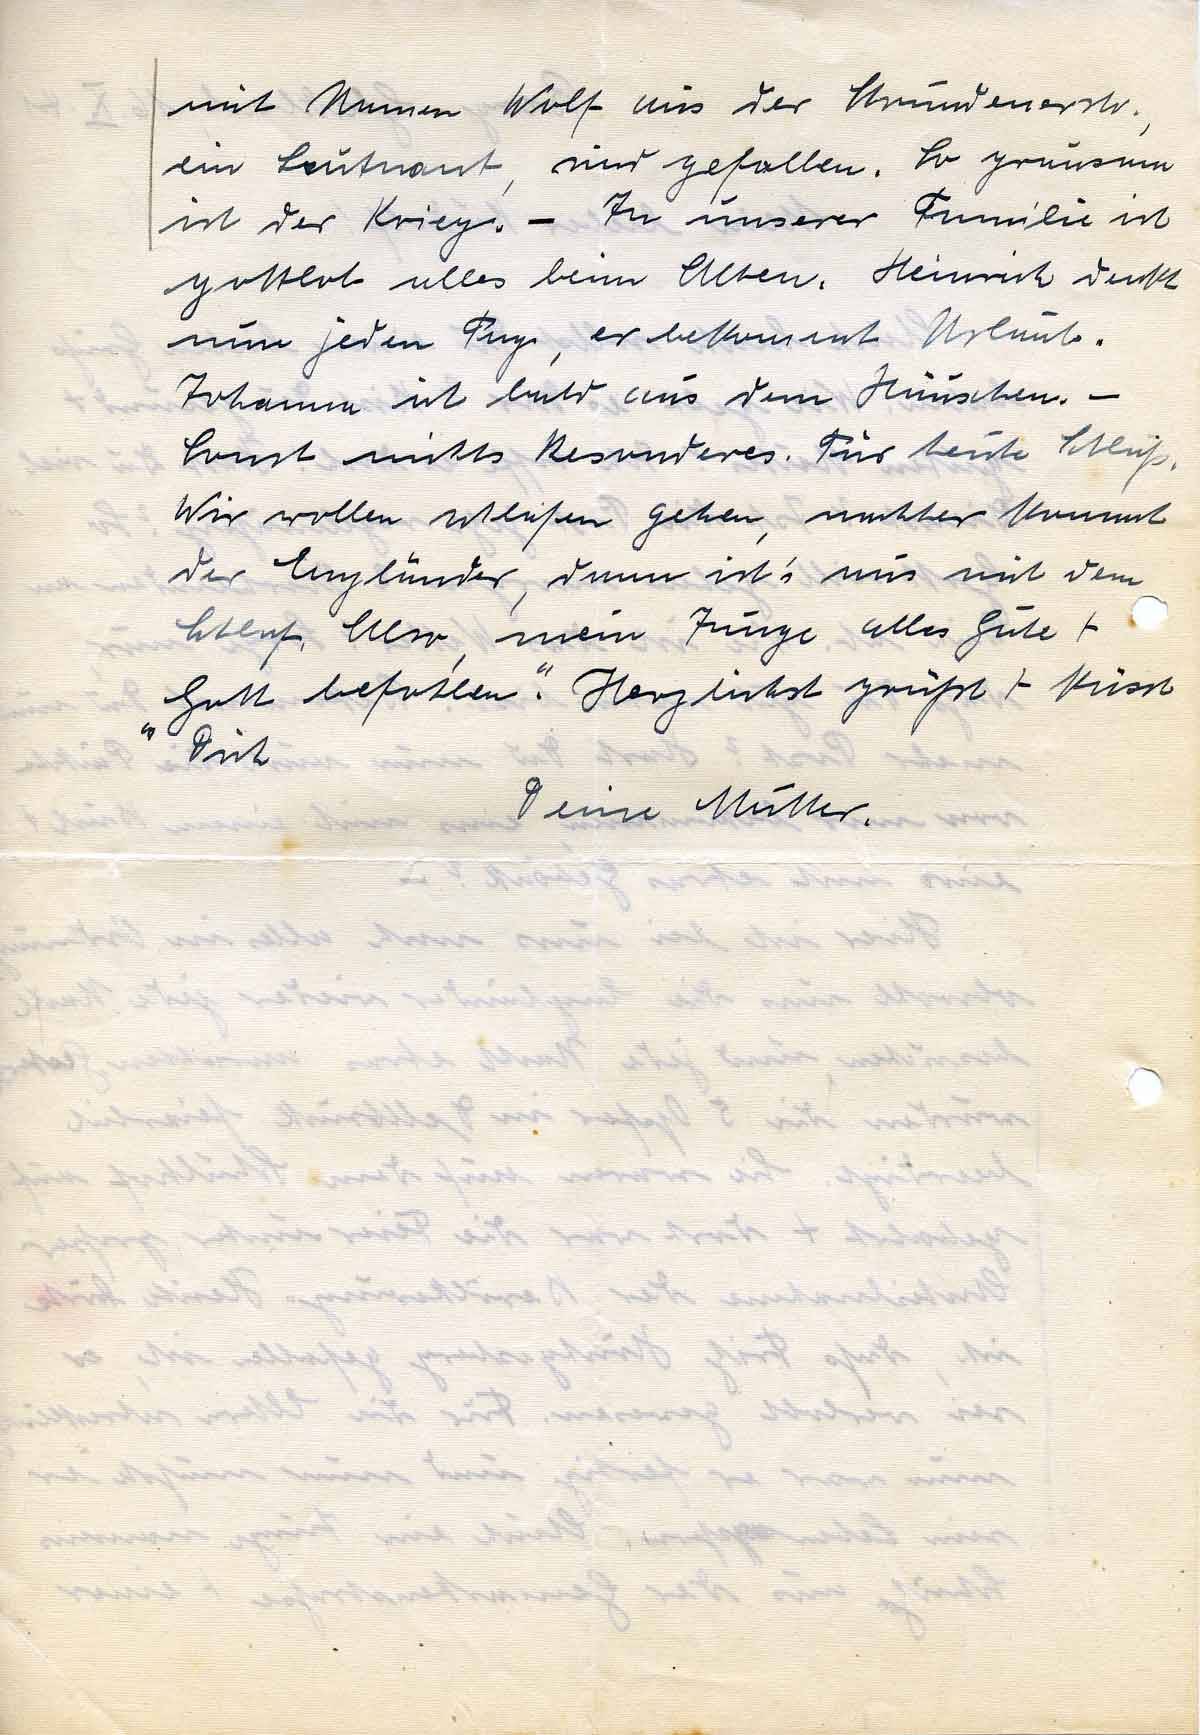 mit Namen Wolf aus der Strundenerstr.,
ein Leutnant, sind gefallen. So grausam
ist der Krieg. – In unserer Familie ist
gottlob alles beim Alten. Heinrich denkt
nun jeden Tag, er bekommt Urlaub.
Johanna ist bald aus dem Häuschen. –
Sonst nichts Besonderes. Für heute Schluß.
Wir wollen schlafen gehen, nachher kommt
der Engländer, dann ist's aus mit dem
Schlaf. Also, mein Junge alles Gute +
Gott befohlen“. Herzlichst grüßt + küsst
“ Dich
Deine Mutter.